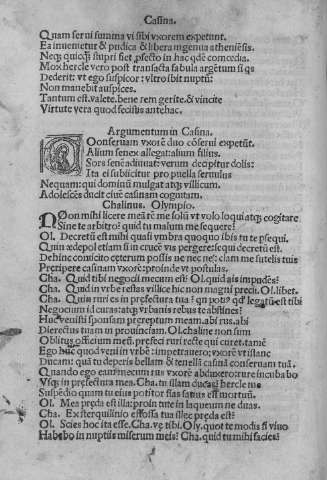 Casina.
Quam serui summa vi sibi vxorem expetunt.
Ea inuenietur & pudica & libera ingenua atheniẽsis.
Neq; quicq̃ stupri fiet ꝓfecto in hac qdẽ comœdia.
Mox hercle vero post transacta fabula argẽtum si qs
Dederit: vt ego suspicor: vltro ibit nuptũ:
Non manebit auspices.
Tantum est. valete. bene rem gerite. & vincite
Virtute vera quod fecistis antehac.
Argumentum in Casina.
Conseruam vxorẽ duo cõserui expetũt.
Alium senex allegat: alium filius.
Sors senẽ adiuuat: verum decipitur dolis:
Ita ei subiicitur pro puella seruulus
Nequam: qui dominũ mulgat atq; villicum.
Adolescẽs ducit ciuẽ casinam cognitam.
Chalinus. Olympio.
NOon mihi licere meã rẽ me solũ vt volo loqui atq; cogitare
Sine te arbitro? quid tu malum me sequere?
Ol. Decretũ est mihi quasi vmbra quoquo ibis tu te ꝑsequi.
Quin ædepol etiam si in crucẽ vis pergere seq decretũ est.
Dehinc conicito cęterum possis ne nec ne: clam me sutelis tuis
Preripere casinam vxorẽ: proinde vt postulas.
Cha. Quid tibi negocii mecum est? Ol. quid ais impudẽs?
Cha. Quid in vrbe reptas villice hic non magni precii. Ol. libet.
Cha. Quin ruri es in pręfectura tua? qn potiꝰ qđ legatũ est tibi
Negocium id curas: atq; vrbanis rebus te abstines?
Huc venisti sponsam prereptum meam. abi rus. abi
Dierectus tuam in prouinciam. Ol. chaline non sum
Oblitus officium meũ. prefeci ruri recte qui curet. tamẽ
Ego huc quod veni in vrbẽ: impetrauero: vxorẽ vt istanc
Ducam: quã tu deperis bellam & tenellã casinã conseruam tuã.
Quando ego eam mecum rus vxorẽ abduxero: rure incubabo
Vsq; in pręfectura mea. Cha. tu illam ducas? hercle me
Suspẽdio quam tu eius potitor fias satius est mortuũ.
Ol. Mea pręda est illa: proin tute in laqueum te duas.
Cha. Ex sterquilinio effossa tua illęc pręda est?
Ol. Scies hoc ita esse. Cha. vę tibi. Oly. quot te modis si viuo
Habebo in nuptiis miserum meis? Cha. quid tu mihi facies?